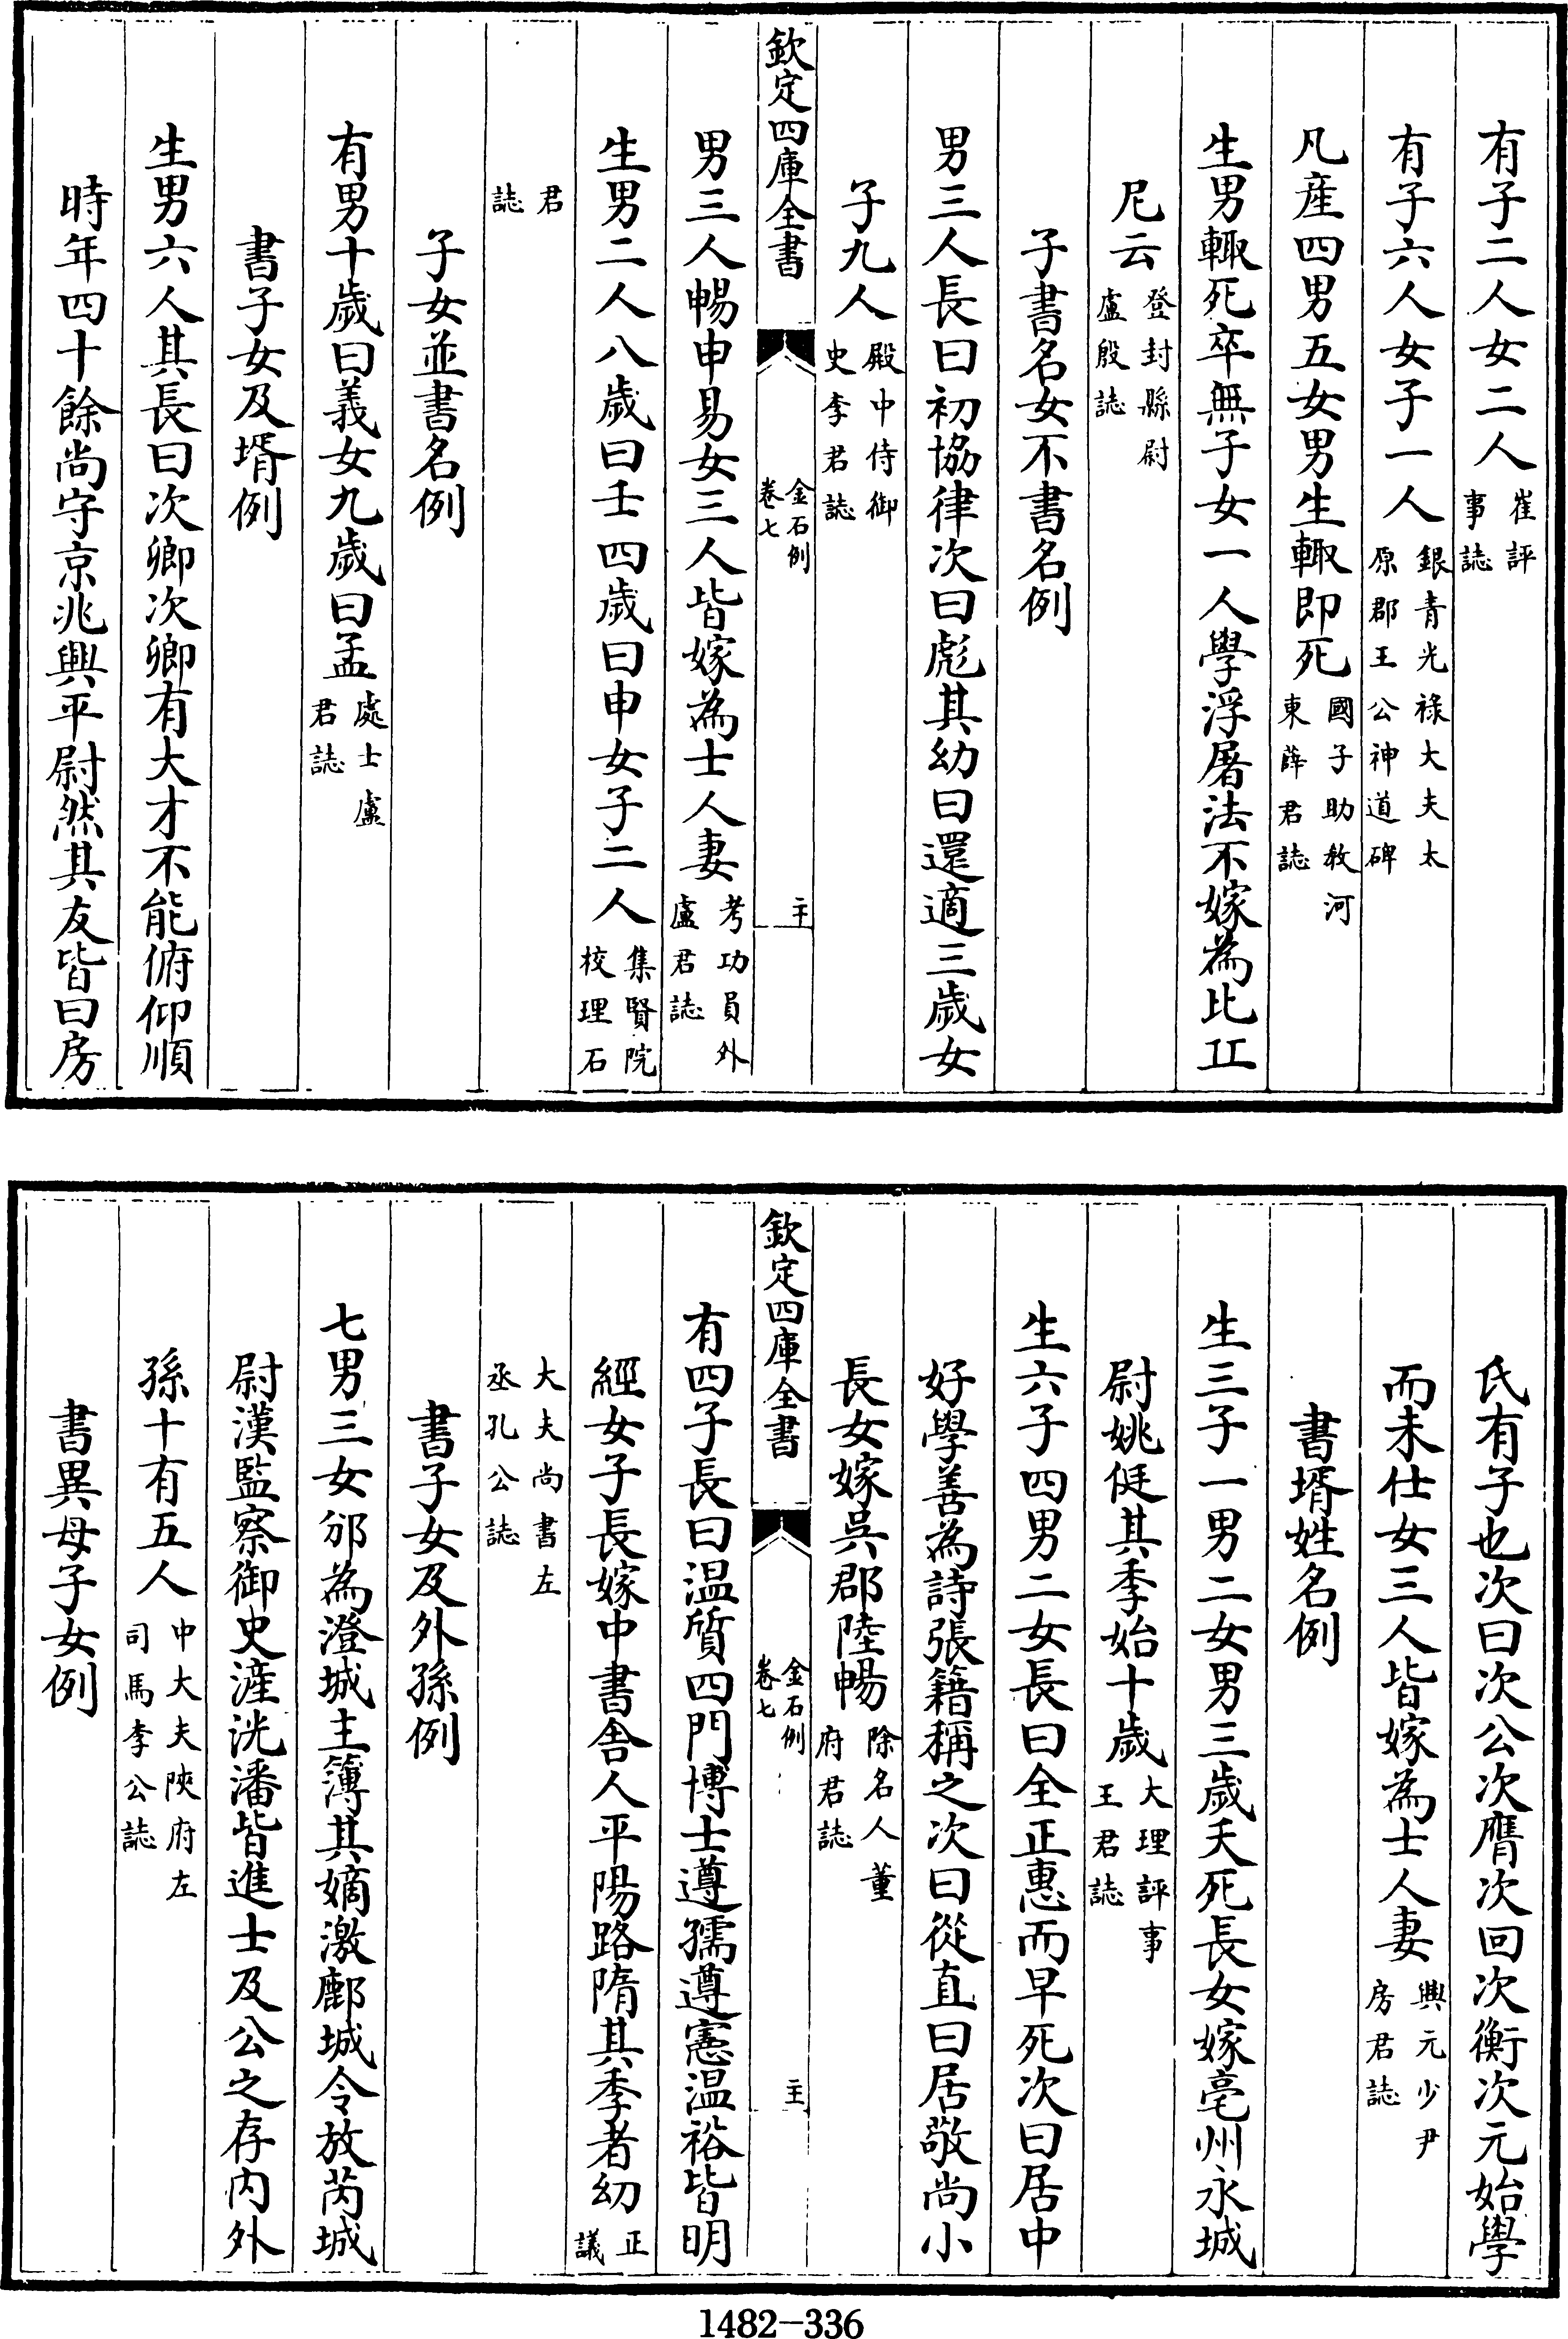 有子二人女二人崔評事誌
有子六人女子一人銀青光祿大夫太原郡王公神道碑
凡産四男五女男生輙即死國子助教河東薛君誌
生男輙死卒無子女一人學浮屠法不嫁為比丘
尼云登封縣尉盧殷誌
子書名女不書名例
男三人長曰初協律次曰彪其幼曰還適三歲女
子九人殿中侍御史李君誌
欽定四庫全書 金石例卷七
男三人暢申易女三人皆嫁為士人妻考功員外盧君誌
生男二人八歲曰壬四歲曰申女子二人集賢院校理石
君誌
子女並書名例
有男十歲曰義女九歲曰孟處士盧君誌
書子女及壻例
生男六人其長曰次卿次卿有大才不能俯仰順
時年四十餘尚守京兆興平尉然其友皆曰房
氏有子也次曰次公次膺次回次衡次元始學
而未仕女三人皆嫁為士人妻興元少尹房君誌
書壻姓名例
生三子一男二女男三歲夭死長女嫁亳州永城
尉姚侹其季始十歲大理評事王君誌
生六子四男二女長曰全正惠而早死次曰居中
好學善為詩張籍稱之次曰從直曰居敬尚小
長女嫁吳郡陸暢除名人董府君誌
欽定四庫全書 金石例卷七
有四子長曰温質四門博士遵孺遵憲温裕皆明
經女子長嫁中書舍人平陽路隋其季者幼正議
大夫尚書左丞孔公誌
書子女及外孫例
七男三女邠為澄城主簿其嫡激鄜城令放芮城
尉漢監察御史滻洸潘皆進士及公之存内外
孫十有五人中大夫陝府左司馬李公誌
書異母子女例
1482-336